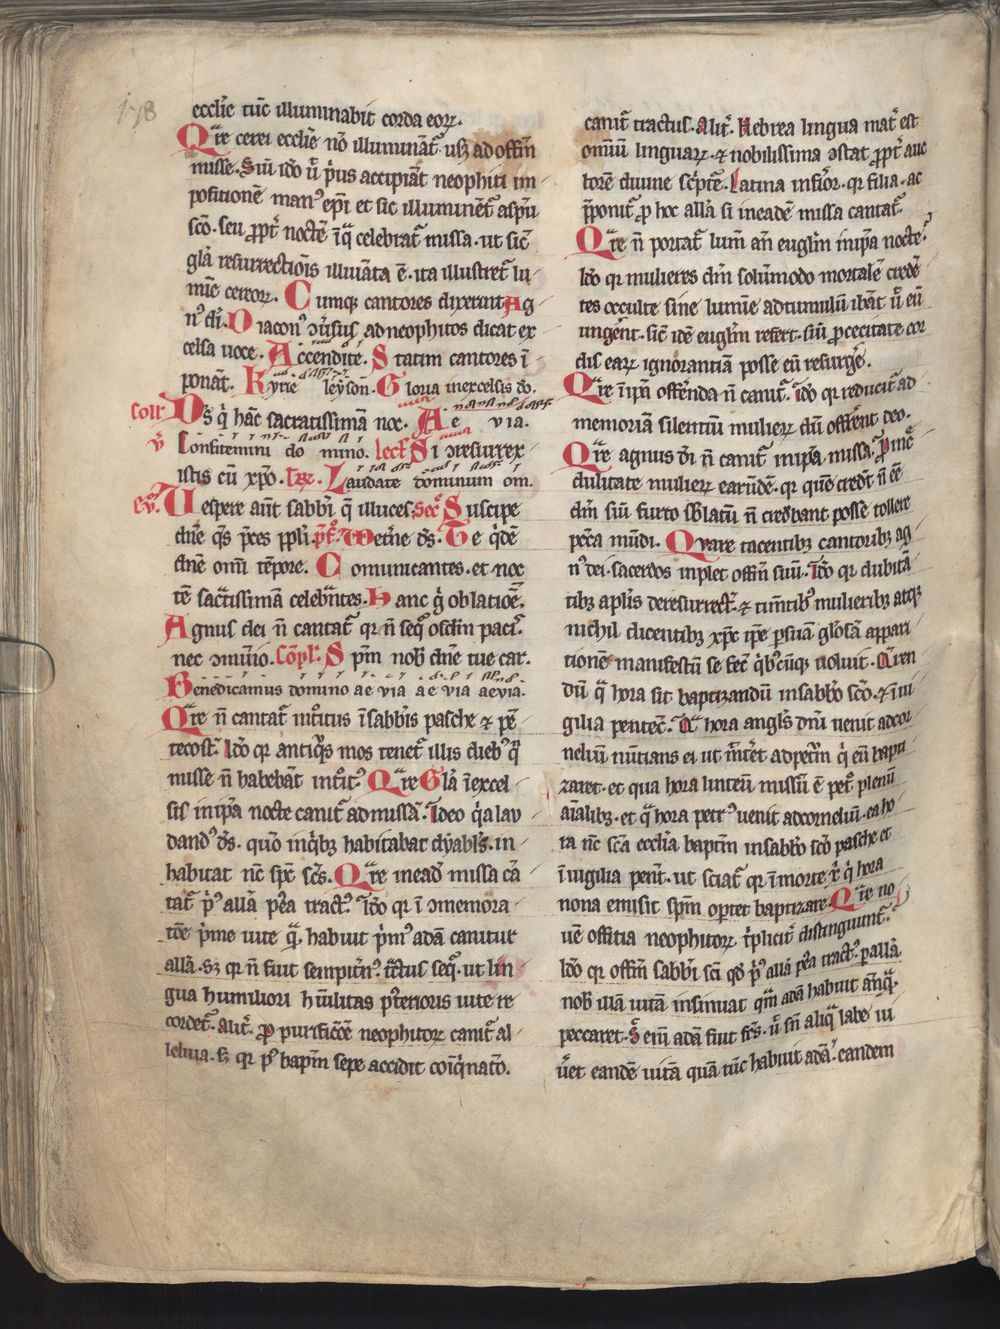 178
eccl'ie tūc illuminabit corda eoꝝ.
Qͣre cerei eccl'ie nō illuminātᷣ usꝫ ad offm̄
misse. Siū id'o ū p'us accipiāt neophiti im
positionē manꝰ ep̄i et sic illuminētᷣ asp̄u
sc̄o. seu ꝓptᷣ noctē ī qͣ celebratᷣ missa. ut sic̄
gl'a resurrectiōis illuīata ē. ita illustretᷣ lu
mīe cereoꝝ. Cumqꝫ cantores dixerint Ag
nꝰ dī. Diaconꝰ ꝯūsus ad neophitos dicat ex
celsa uoce. Accendite. Statim cantores ī
ponāt. Kyrie leyson. Gloria in excelsis do.
coll' Ds q' hāc sacratissimā noc. Ae via.
v̄ Confitemini do mino. lect' Si ꝯresurrex
istis cū xp̄o. Laudate dominum om.
ev̄. Uespere aūt sabb'i q̄ illuces. Secᷣ Suscipe
dn̄e qs p̄ces pp̄li. p̄f. Veterne ds. Te q'dē
dn̄e om̄i tēpore. Comunicantes. et noc
tē sac̄tissimā celebn̄tes. Hanc g' oblatioē.
Agnus dei n̄ cantatᷣ qr n̄ seqᷣ osc̄lm pacis.
nec ꝯmūio. Cōpl'. Spm̄ nob dn̄e tue car.
Benedicamus domino ae via ae via aevia.
Qͣre n̄ cantatᷣ int'oitus ī sabb'is pasche ⁊ pē
tecost'. Ido qr antiq's mos tenetᷣ illis diebꝰ qᷣ
misse n̄ habebāt int'oitꝰ. Qͣre Gl'a ī excel
sis in ip̄a nocte canitᷣ ad missā. Ideo q'a lau
dandꝰ ds. quō in q'bꝫ habitabat dyabl's. in
habitat nc̄ spc̄ sc̄s. Qͣre in eadē missa cā
tatᷣ pꝰ all'a p̄ea tractꝰ. Ido qr ī ꝯmemora
tōe p'me uite qͣ habuit p'mꝰ adā canitur
all'a. sꝫ qr n̄ fuit sempitn̄ꝰ. tc̄tus seqᷣ. ut lin
gua humiliori hūilitas p't'erioris uite re
cordetᷣ. alit'. ꝓ purificōe neophitoꝝ canitᷣ al
leluia. sꝫ qr pꝰ bapm̄ sepe accidit coīq'natō.
canitᷣ tractus. Alit'. Hebrea lingua matᷣ est
omnium linguaꝝ. ⁊ nobilissima ꝯstat ꝓptᷣ auc
torē diuine sc'pte. Latina inf'ior. qr filia. ac
p̄ponitᷣ ꝓ hoc all'a si in eadē missa cantatᷣ.
Qͣre n̄ portatᷣ lum̄ an̄ eugl'm in ip̄a nocte.
Ido qr mulieres dn̄m solummodo mortalē credē
tes occulte sine lumīe ad tumulū ibāt ū eū
ungerent. sic̄ idē eugl'm refert. siū ꝓ cecitate cor
dis eaꝝ ignorantiā posse eū resurgere.
Qͣre ī ip̄a offerēda n̄ canitᷣ. Ido qr reducitᷣ ad
memoriā silentiū mulieꝝ dū offerēt deo.
Qͣre agnus dī n̄ canitᷣ in ip̄a missa. ꝓ inc'
dulitate mulieꝝ earūdē. qr quē credit n̄ eē
dn̄m siū furto sblatū n̄ credebant posse tollere
pec̄a mūdi. Quare tacentibꝫ cantoribꝫ ag
nꝰ dei. sacerdos inplet offm̄ suū. Ido qr dubitā
tibꝫ apl'is de resurrect'. ⁊ tim̄tibꝰ mulieribꝫ atqꝫ
nichil dicentibꝫ xp̄c ip̄e per suam gl'osā appari
tionē manifestū se fec' q'bꝰcūqꝫ uoluit. Queren
dū qͣ hora sit baptizandū in sabbo sc̄o. ⁊ ī ui
gilia pentec'. Qͣ hora angl's dn̄i uenit ad cor
neliū nūtians ei ut mitteret ad petrū q' eū bapti
zaret. et qua hora linteū missū ē petᵒ plenū
aīalibꝫ. et qͣ hora petrꝰ uenit ad corneliū. ea ho
ra nc̄ sc̄a eccl'ia baptm̄ in sabbo sc̄o pasche et
ī uigilia pent'. ut sciatᷣ qr ī morte x' q' hora
nona emisit spm̄ oportet baptizare. Qͣre no
ue offitia neophitoꝝ t'plicit' distinguuntᷣ.
Ido qr offm̄ sabb'i sc̄i qd' pꝰ all'a p̄ea tractꝰ. per all'a
nob illā uitā insinuat quā adā habuit an̄qͣ
peccaret. Sic enī adā fuit fc̄s. ū sn̄ aliqͣ labe ui
ūet eandē uitā quā tūc habuit adā. eandem